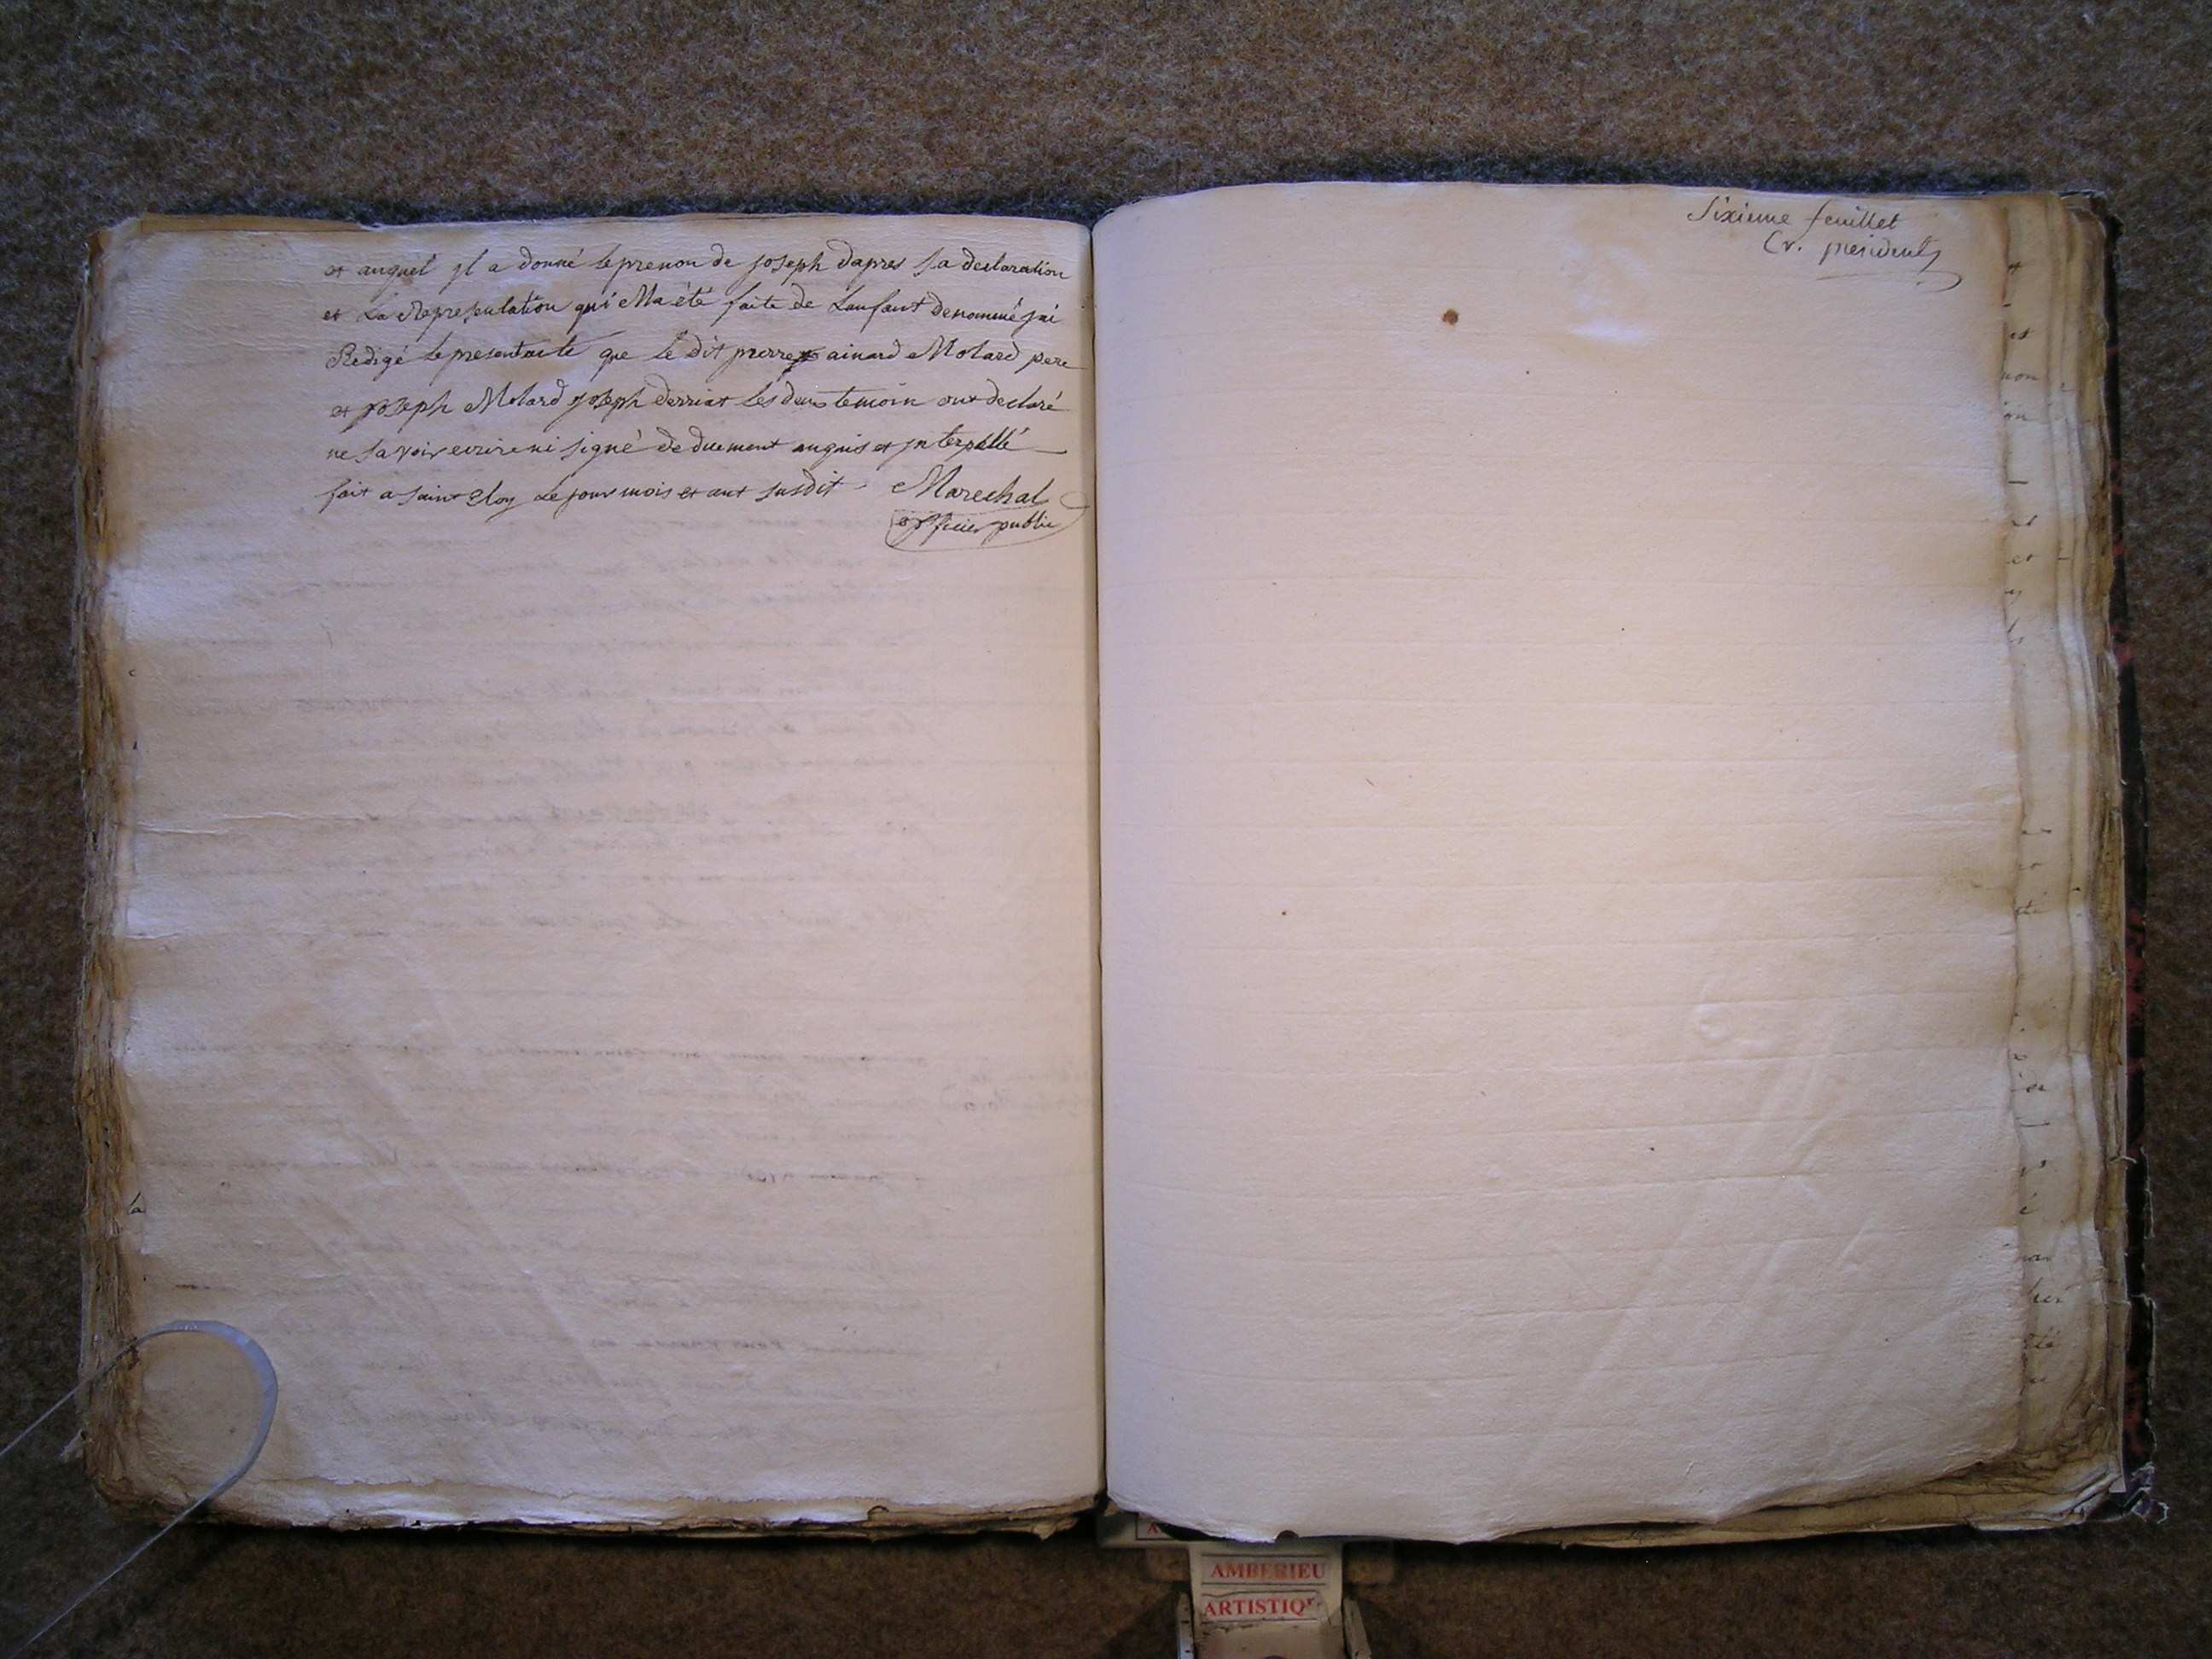 et auquel yl a donné leprenon de joseph dapres sa declaration
et La Representation qui Ma été faite de Lanfant denommé jai
Redigé lepresentacte que le dit pierre ainard Molard pere
et joseph Molard joseph derriat les deus temoin ont declaré
ne savoir ecrire ni signé de duement anquis et jnterpellé
fait a saint Eloy Le jour mois et ant susdit Marechal
officier public
Sixieme feuillet
president
AMBERIEU
ARTISTIQ